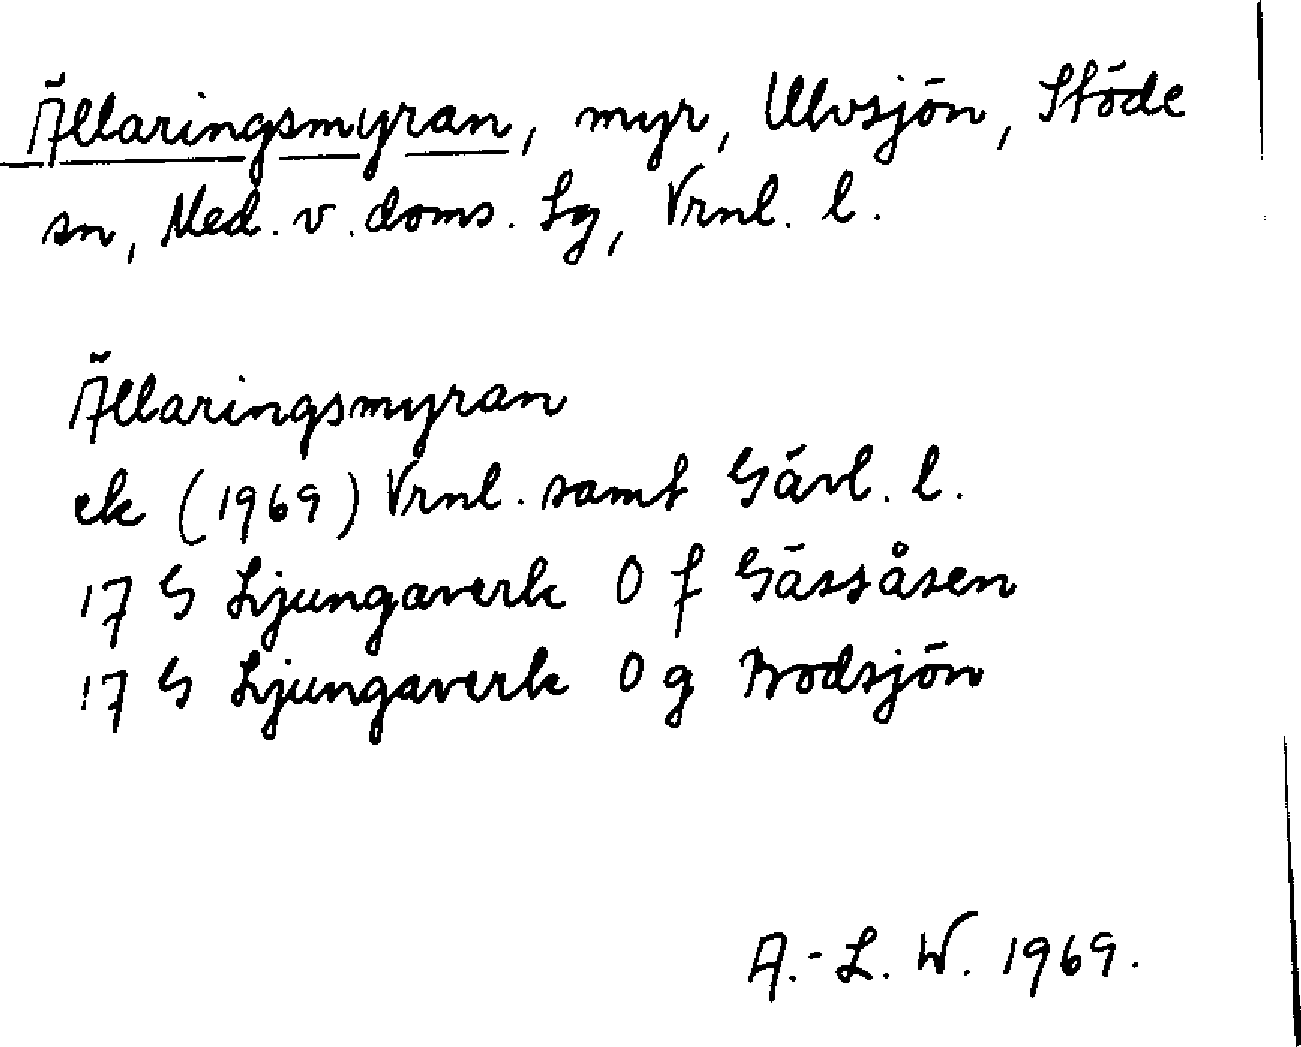 Ällaringsmyran, myr, Ulvsjön, Stöde
sn, Med. v. doms. Lg, Vrnl. l.
Ällaringsmyran
ek (1969) Vrnl. samt Gävl. l.
17 G Ljungaverk 0 f Gässåsen
17 G Ljungaverk 0 g Brodsjön
A.-L. W. 1969.